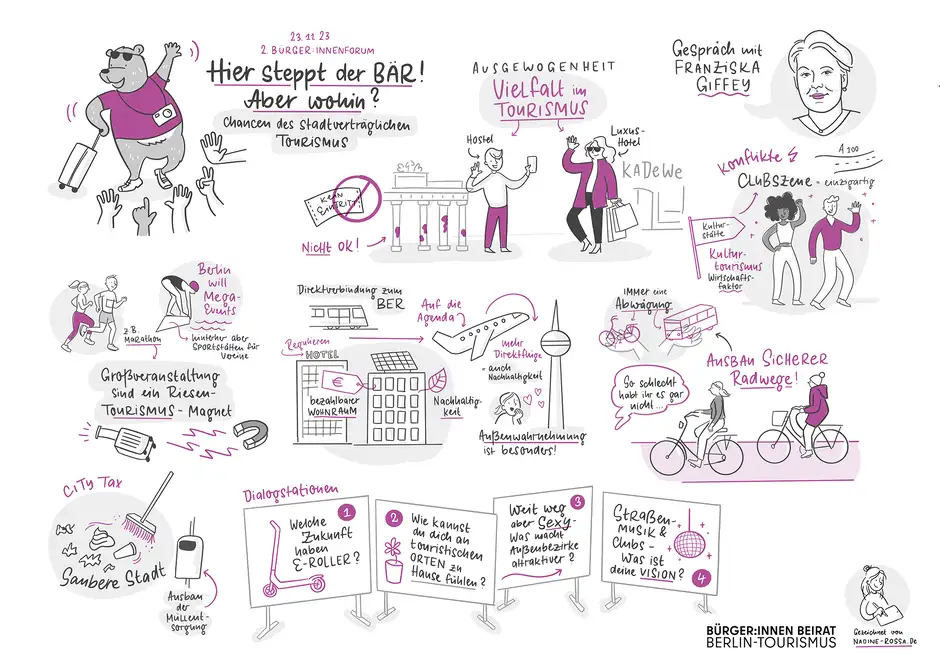 23.11.23
2. BÜRGER:INNENFORUM
Hier steppt der BÄR!
Aber wohin?
Chancen des stadtverträglichen
TOURISMUS
AUSGEWOGENHEIT
Vielfalt im
TOURISMUS
Hostel
Luxus-
Hotel
KADEWE
KEIN
EINTRITT
Nicht OK!
Gespräch mit
FRANZISKA
GIFFEY
Konflikte
A 100
CLUBSZENE - einzigartig
Kultur-
stätte
Kultur-
tourismus
Wirtschafts-
faktor
Berlin
will
Mega-
Events
z.B.
Marathon
hinterher aber
SPORTSTÄTTEN für
Vereine
Großveranstaltung
sind ein Riesen-
TOURISMUS - Magnet
Direktverbindung zum
BER
Auf die
Agenda
Regulieren
HOTEL
€
bezahlbarer
WOHNRAUM
Nachhaltig-
keit
mehr
Direktflüge
= auch
Nachhaltigkeit
Außenwahrnehmung
ist besonders!
IMMER eine
Abwägung
AUSBAU SICHERER
Radwege!
So schlecht
habt ihr es gar
nicht...
CITY TAX
Saubere Stadt
Ausbau
der
Müllent-
sorgung
Dialogstationen
1
Welche
Zukunft
haben
E-ROLLER?
2
Wie kannst
du dich an
touristischen
ORTEN zu
Hause fühlen?
3
Weit weg
aber Sexy-
Was macht
Außenbezirke
attraktiver?
STRAßEN-
MUSIK &
Clubs -
Was ist
deine VISION?
4
BÜRGER:INNEN BEIRAT
BERLIN-TOURISMUS
Gezeichnet von
NADINE-ROSSA.De